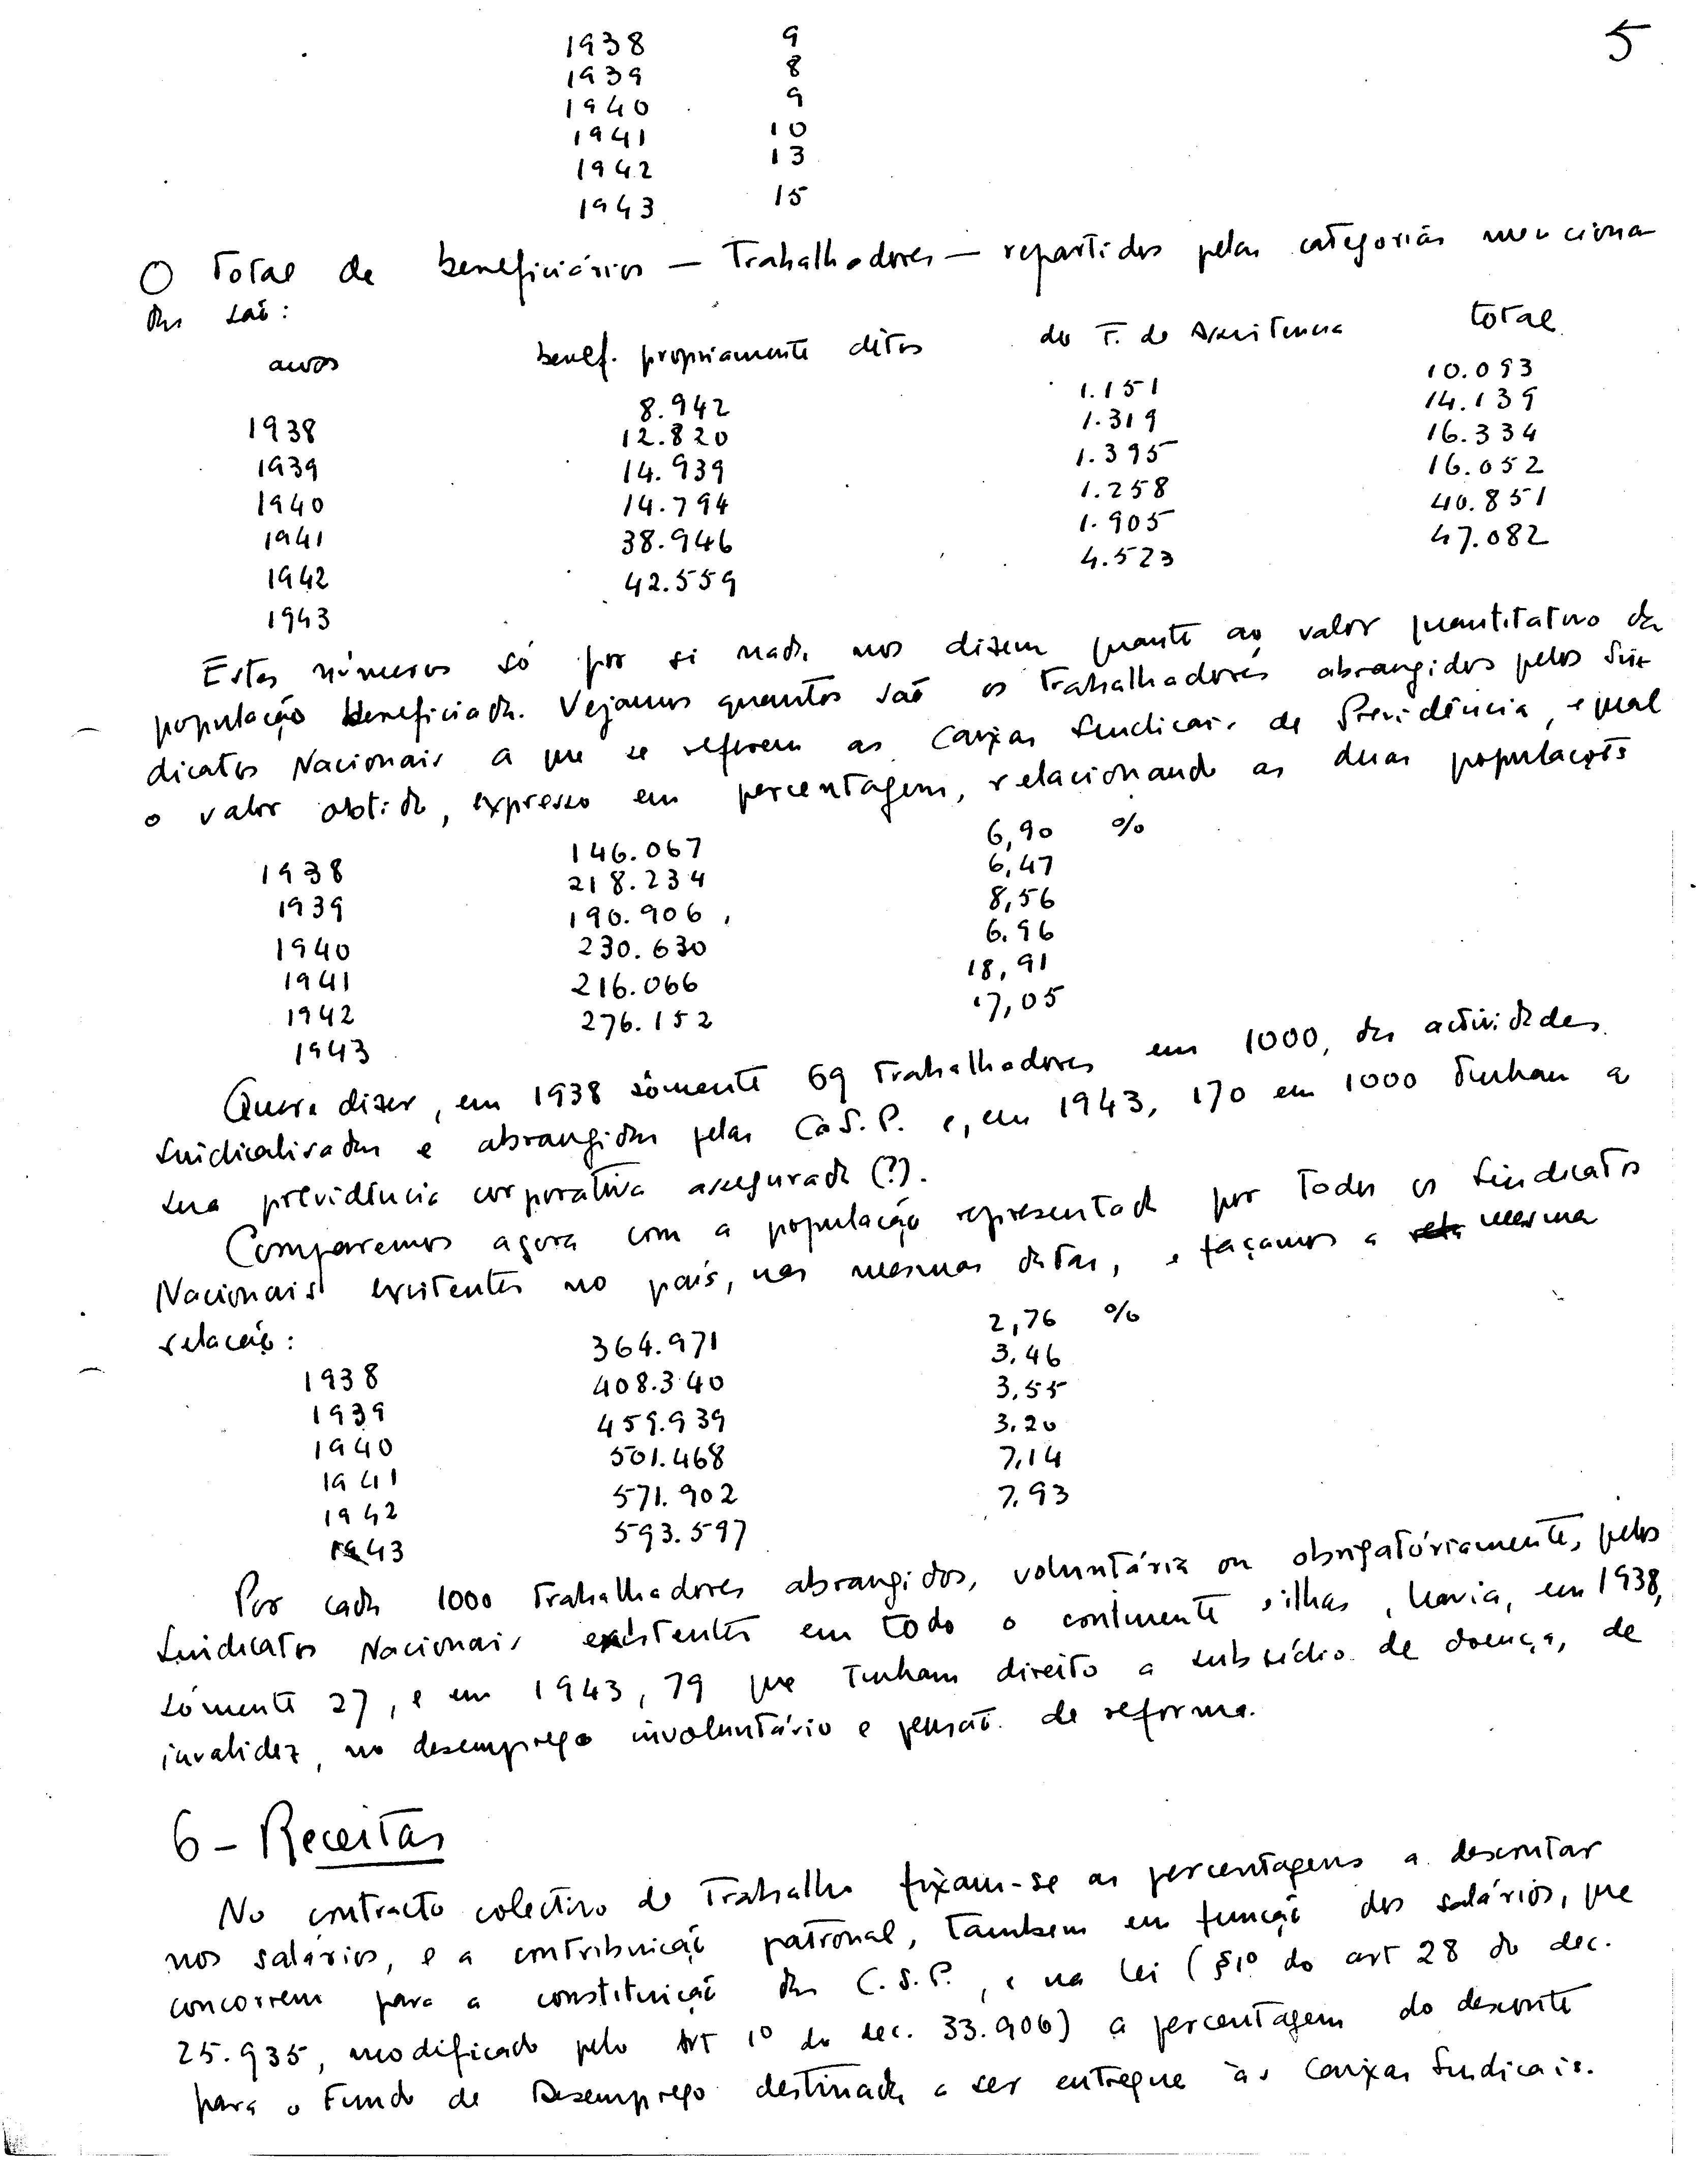 5
1938 9
1939 8
1940 9
1941 10
1942 13
1943 15
O total de beneficiários — trabalhadores — repartidos pelas categorias menciona
das são:
anos benef. propriamente ditos do F. de Assistencia total
1938 8.942 1.151 10.093
1939 12.820 1.319 14.139
1940 14.939 1.395 16.334
1941 14.794 1.258 16.052
1942 38.946 1.905 40.851
1943 42.559 4.523 47.082
Estes números só por si nada nos dizem quanto ao valor quantitativo da
população beneficiada. Vejamos quantos são os trabalhadores abrangidos pelos Sin-
dicatos Nacionais a que se referem as Caixas Sindicais de Previdência, e qual
o valor obtido, expresso em percentagem, relacionando as duas populações
1938 146.067 6,90 %
1939 218.234 6,47
1940 190.906 8,56
1941 230.630 6.96
1942 216.066 18,91
1943 276.152 17,05
Quere dizer, em 1938 sòmente 69 trabalhadores em 1000, das actividades
sindicalizadas e abrangidas pelas C.S.P. e, em 1943, 170 em 1000 tinham a
sua previdência corporativa assegurada (?).
Comparemos agora com a população representada por todos os Sindicatos
Nacionais existentes no país, nas mesmas datas, e façamos a mesma
relação:
1938 364.971 2,76 %
1939 408.340 3.46
1940 459.939 3,55
1941 501.468 3.20
1942 571.902 7,14
1943 593.597 7.93
Por cada 1000 trabalhadores abrangidos, voluntária ou obrigatóriamente, pelos
Sindicatos Nacionais existentes em todo o continente e ilhas, havia, em 1938,
sómente 27, e em 1943, 79 que tinham direito a subsídio de doença, de
invalidez, no desemprego involuntário e pensão de reforma.
6 - Receitas
No contracto colectivo de trabalho fixam-se as percentagens a descontar
nos salários, e a contribuição patronal, tambem em função dos salários, que
concorrem para a constituição das C.S.P., e na lei (§1º do art 28 do dec.
25.935, modificado pelo art 1º do dec. 33.906) a percentagem do desconto
para o Fundo de Desemprego destinada a ser entregue às Caixas Sindicais.